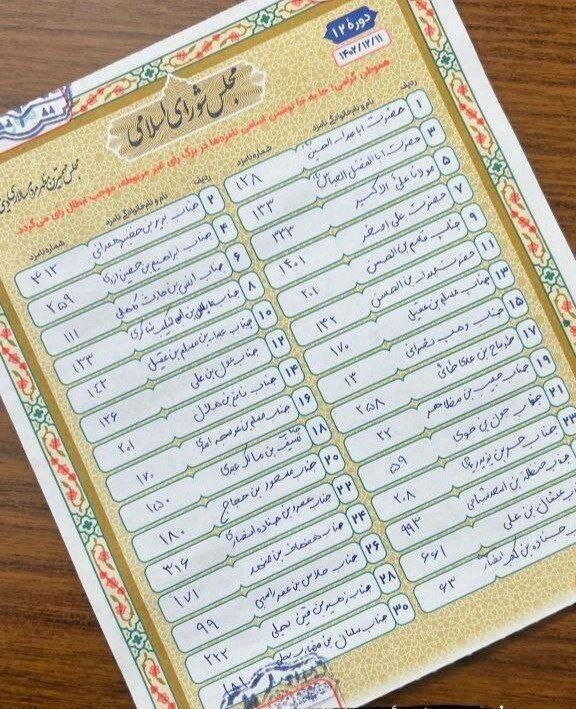 دورهٔ ۱۲
۱۴۰۲/۱۲/۱۱
مجلس شورای اسلامی
هموطن گرامی: جا به جا نوشتن اسامی نامزدها در برگ رای غیر مربوطه، موجب ابطال رای می‌گردد.
ردیف نام و نام‌خانوادگی نامزد شماره نامزد
۱ حضرت اباعبداله الحسین ۱۲۸
۳ حضرت ابالفضل العباس ۱۳۳
۵ مولانا علی الاکبر ۳۳۳
۷ حضرت علی اصغر ۱۴۰۱
۹ جناب قاسم بن الحسن ۲۰۱
۱۱ حضرت عبداله بن الحسن ۱۳۲
۱۳ جناب مسلم بن عقیل ۱۷۰
۱۵ جناب وهب نصرانی ۱۳
۱۷ طرماح بن عدی طائی ۲۵۸
۱۹ جناب حبیب بن مظاهر ۲۲
۲۱ جناب جون بن حوی ۵۹
۲۳ جناب حر بن یزید ریاحی ۲۰۸
جناب حنظله بن اسعد شبامی ۹۹۳
بن علی ۶۶۱
جناده بن کعب انصار ۶۳
ردیف نام و نام‌خانوادگی نامزد شماره نامزد
۲ جناب بریر بن خضیر همدانی ۴۱۲
۴ جناب ابراهیم بن حصین ازدی ۲۵۹
۶ جناب انس بن حارث کاهلی ۱۱۱
۸ جناب ۱۳۳
۱۰ جناب عبداله بن مسلم بن عقیل ۱۴۲
۱۲ جناب عون بن علی ۱۲۶
۱۴ جناب نافع بن هلال ۲۰۱
۱۶ جناب مسلم بن عوسجه اسدی ۱۷۰
۱۸ جناب بن مالک عبدی ۱۵۰
۲۰ جناب مسعود بن حجاج ۱۸۰
۲۲ جناب عمرو بن جناده انصاری ۳۱۶
۲۴ جناب هفهاف بن مهند ۱۷۱
۲۶ جناب حلاس بن عمر راسبی ۹۹
۲۸ جناب زهیر بن قین بجلی ۲۲۲
۳۰ جناب سلمان بن مضارب بجلی